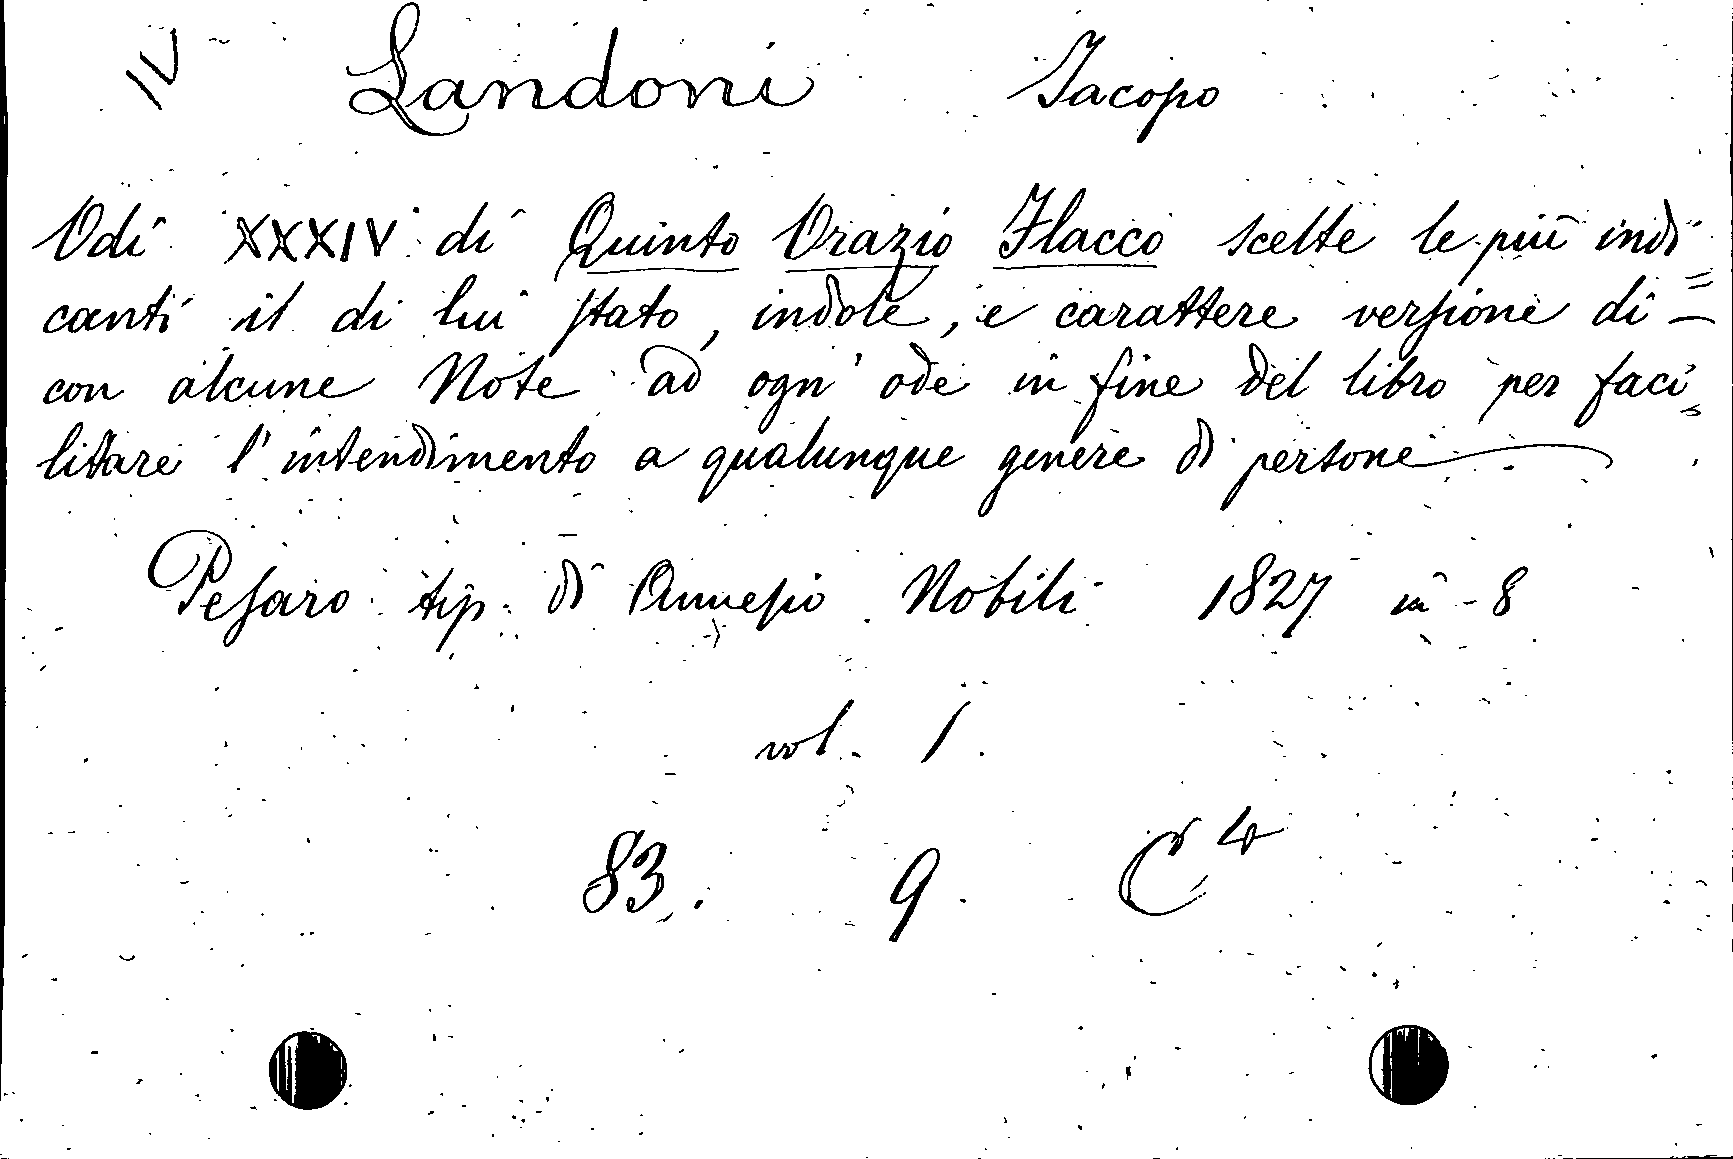 IV Landoni Jacopo
Odi XXXIV di Quinto Orazio Flacco scelte le più indi=
canti il di lui stato, indole, e carattere versione di —
con alcune Note ad ogn' ode in fine del libro per faci=
litare l'intendimento a qualunque genere di persone
Pesaro tip. di Annesio Nobili 1827 in - 8
vol. 1.
83. 9. C 4